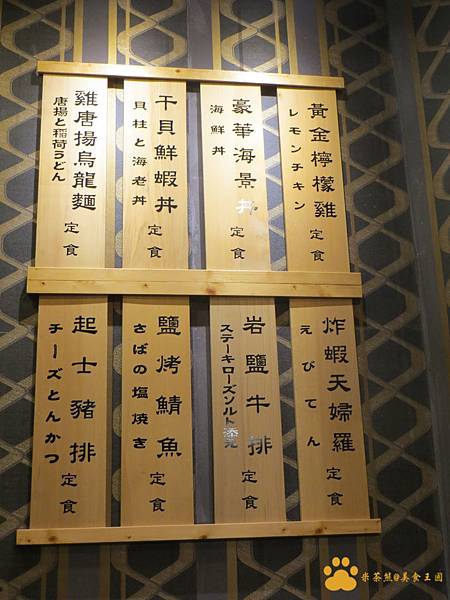 黃金檸檬雞定食
レモンチキン
豪華海景丼定食
海鮮丼
干貝鮮蝦丼定食
貝柱と海老丼
雞唐揚烏龍麵定食
唐揚と稲荷うどん
炸蝦天婦羅定食
えびてん
岩鹽牛排定食
ステーキローズソルト
鹽烤鯖魚定食
さばの塩焼き
起士豬排定食
チーズとんかつ
米茶熊@美食王國